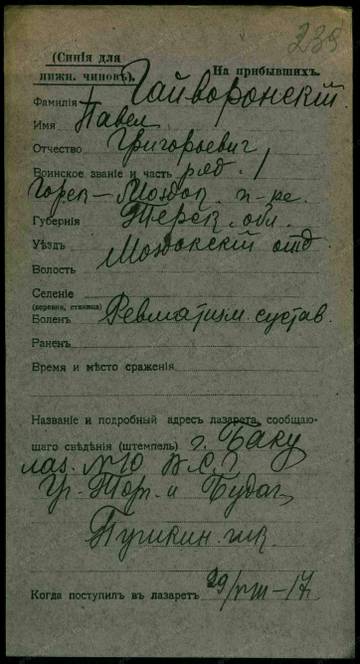 239
(Синія для
нижн. чиновъ).
На прибывшихъ.
Фамилія Гайворонскій.
Имя Павел
Отчество Григорьевич
Воинское званіе и часть ряд. 1
Горск-Моздок. п-ка.
Губернія Терск. обл.
Уѣздъ Моздокскій отд
Волость
Селеніе
(деревня, станица)
Боленъ Ревматизм. сустав.
Раненъ
Время и мѣсто сраженія
Названіе и подробный адресъ лазарета, сообщаю-
щаго свѣдѣнія (штемпель) г. Баку
лаз. №10 В.С.Г
Уг. Торг. и Будаг
Пушкин. шк.
Когда поступилъ въ лазаретъ 29/VIII-17.